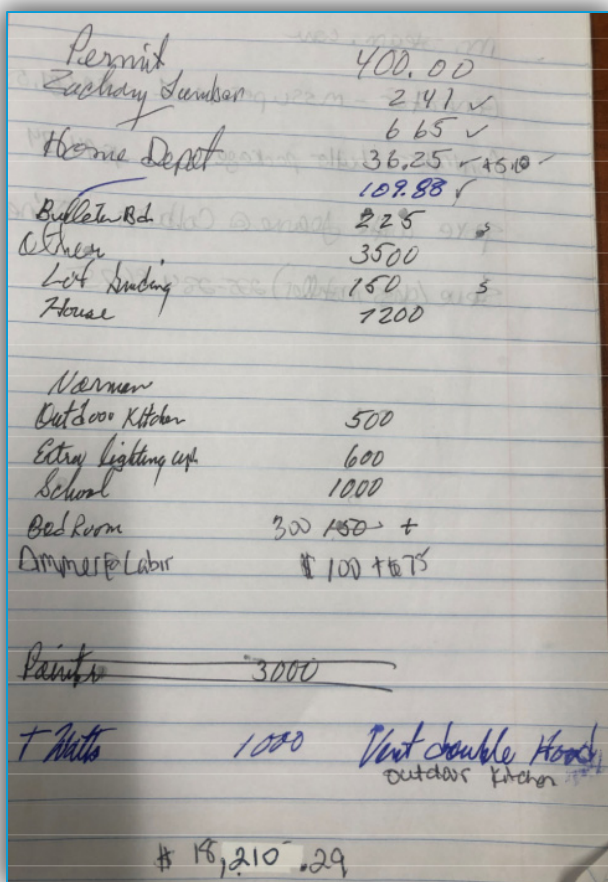 Permit 400.00
Zachary Lumber 241 ✓
665 ✓
Home Depot 36.25 ✓ +5.10
109.88 ✓
Bulletin Bd. 225 s
Other 3500
Lot 150 s
House 1200
Norman
Outdoor Kitchen 500
Entry lighting up 600
School 1000
Bed Room 300 150 +
Labir $ 100 + 75
Paints 3000
T Watts 1000 Vent double Hood
outdoor kitchen
$ 18,210.29